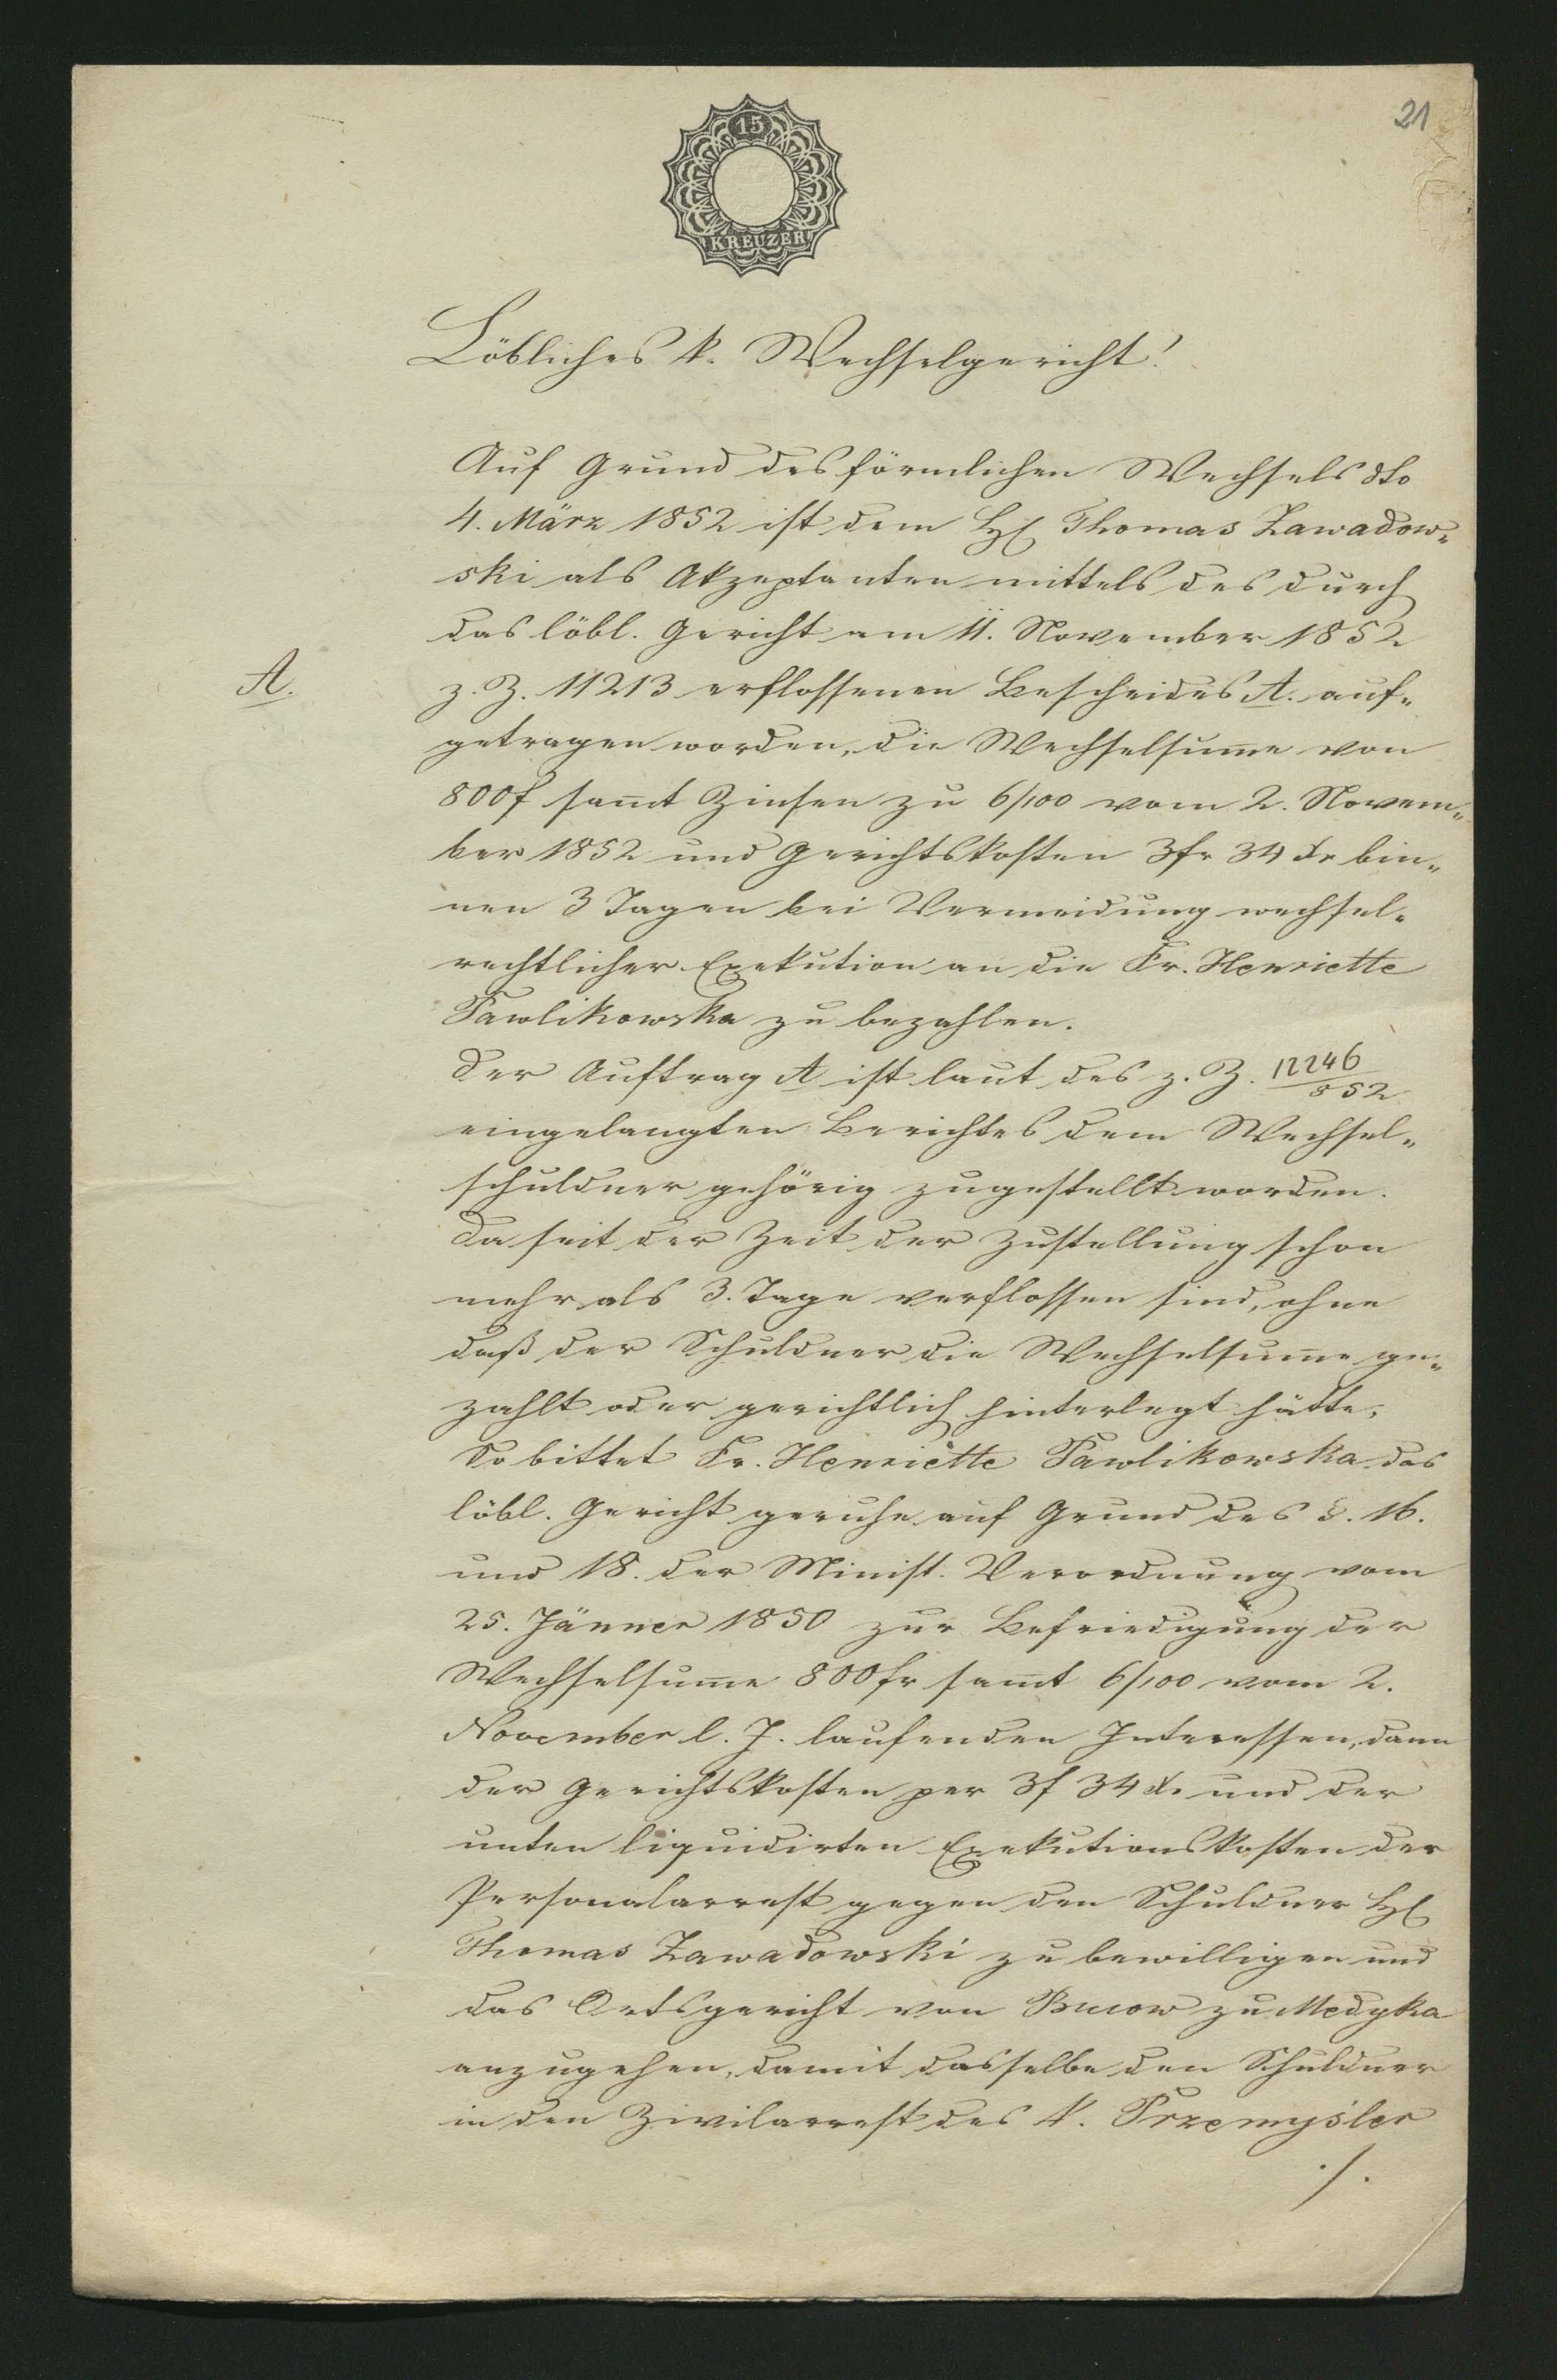 21
15
KREUZER
Löbliches k. Wechselgericht!
Auf Grund des förmlichen Wechsels dto
4. März 1852 ist dem H Thomas Zawadow„
ski als Akzeptanten mittels des durch
das löbl. Gericht am 11. November 1852
A.
z. Z. 11213 erflossenen Bescheides A. auf„
getragen worden, die Wechselsum̅e von
800f sam̅t Zinsen zu 6/100 vom 2. Novem„
ber 1852 und Gerichtskosten 3fr 34 xr bin„
nen 3 Tagen bei Vermeidung wechsel„
rechtlicher Exekution an die Fr. Henriette
Pawlikowska zu bezahlen.
Der Auftrag A ist laut des z. Z. 12246/852
eingelangten Berichtes dem Wechsel„
schuldner gehörig zugestellt worden.
Da seit der Zeit der Zustellung schon
mehr als 3. Tage verflossen sind, ohne
daß der Schuldner die Wechselsum̅e ge„
zahlt oder gerichtlich hinterlegt hätte,
So bittet Fr. Henriette Pawlikowska das
löbl. Gericht geruhe auf Grund des §. 16.
und 18. der Minist. Verordnung vom
25. Jänner 1850 zur Befriedigung der
Wechselsum̅e 800fr sam̅t 6/100 vom 2.
November l. J. laufenden Interessen, dann
der Gerichtskosten per 3f 34 x. und der
unten liquidirten Exekutionskosten der
Personalarrest gegen den Schuldner H
Thomas Zawadowski zu bewilligen und
das Ortsgericht von Bucow zu Medyka
anzugehen, damit dasselbe den Schuldner
in den Zivilarrest des k. Przemyśler
./.